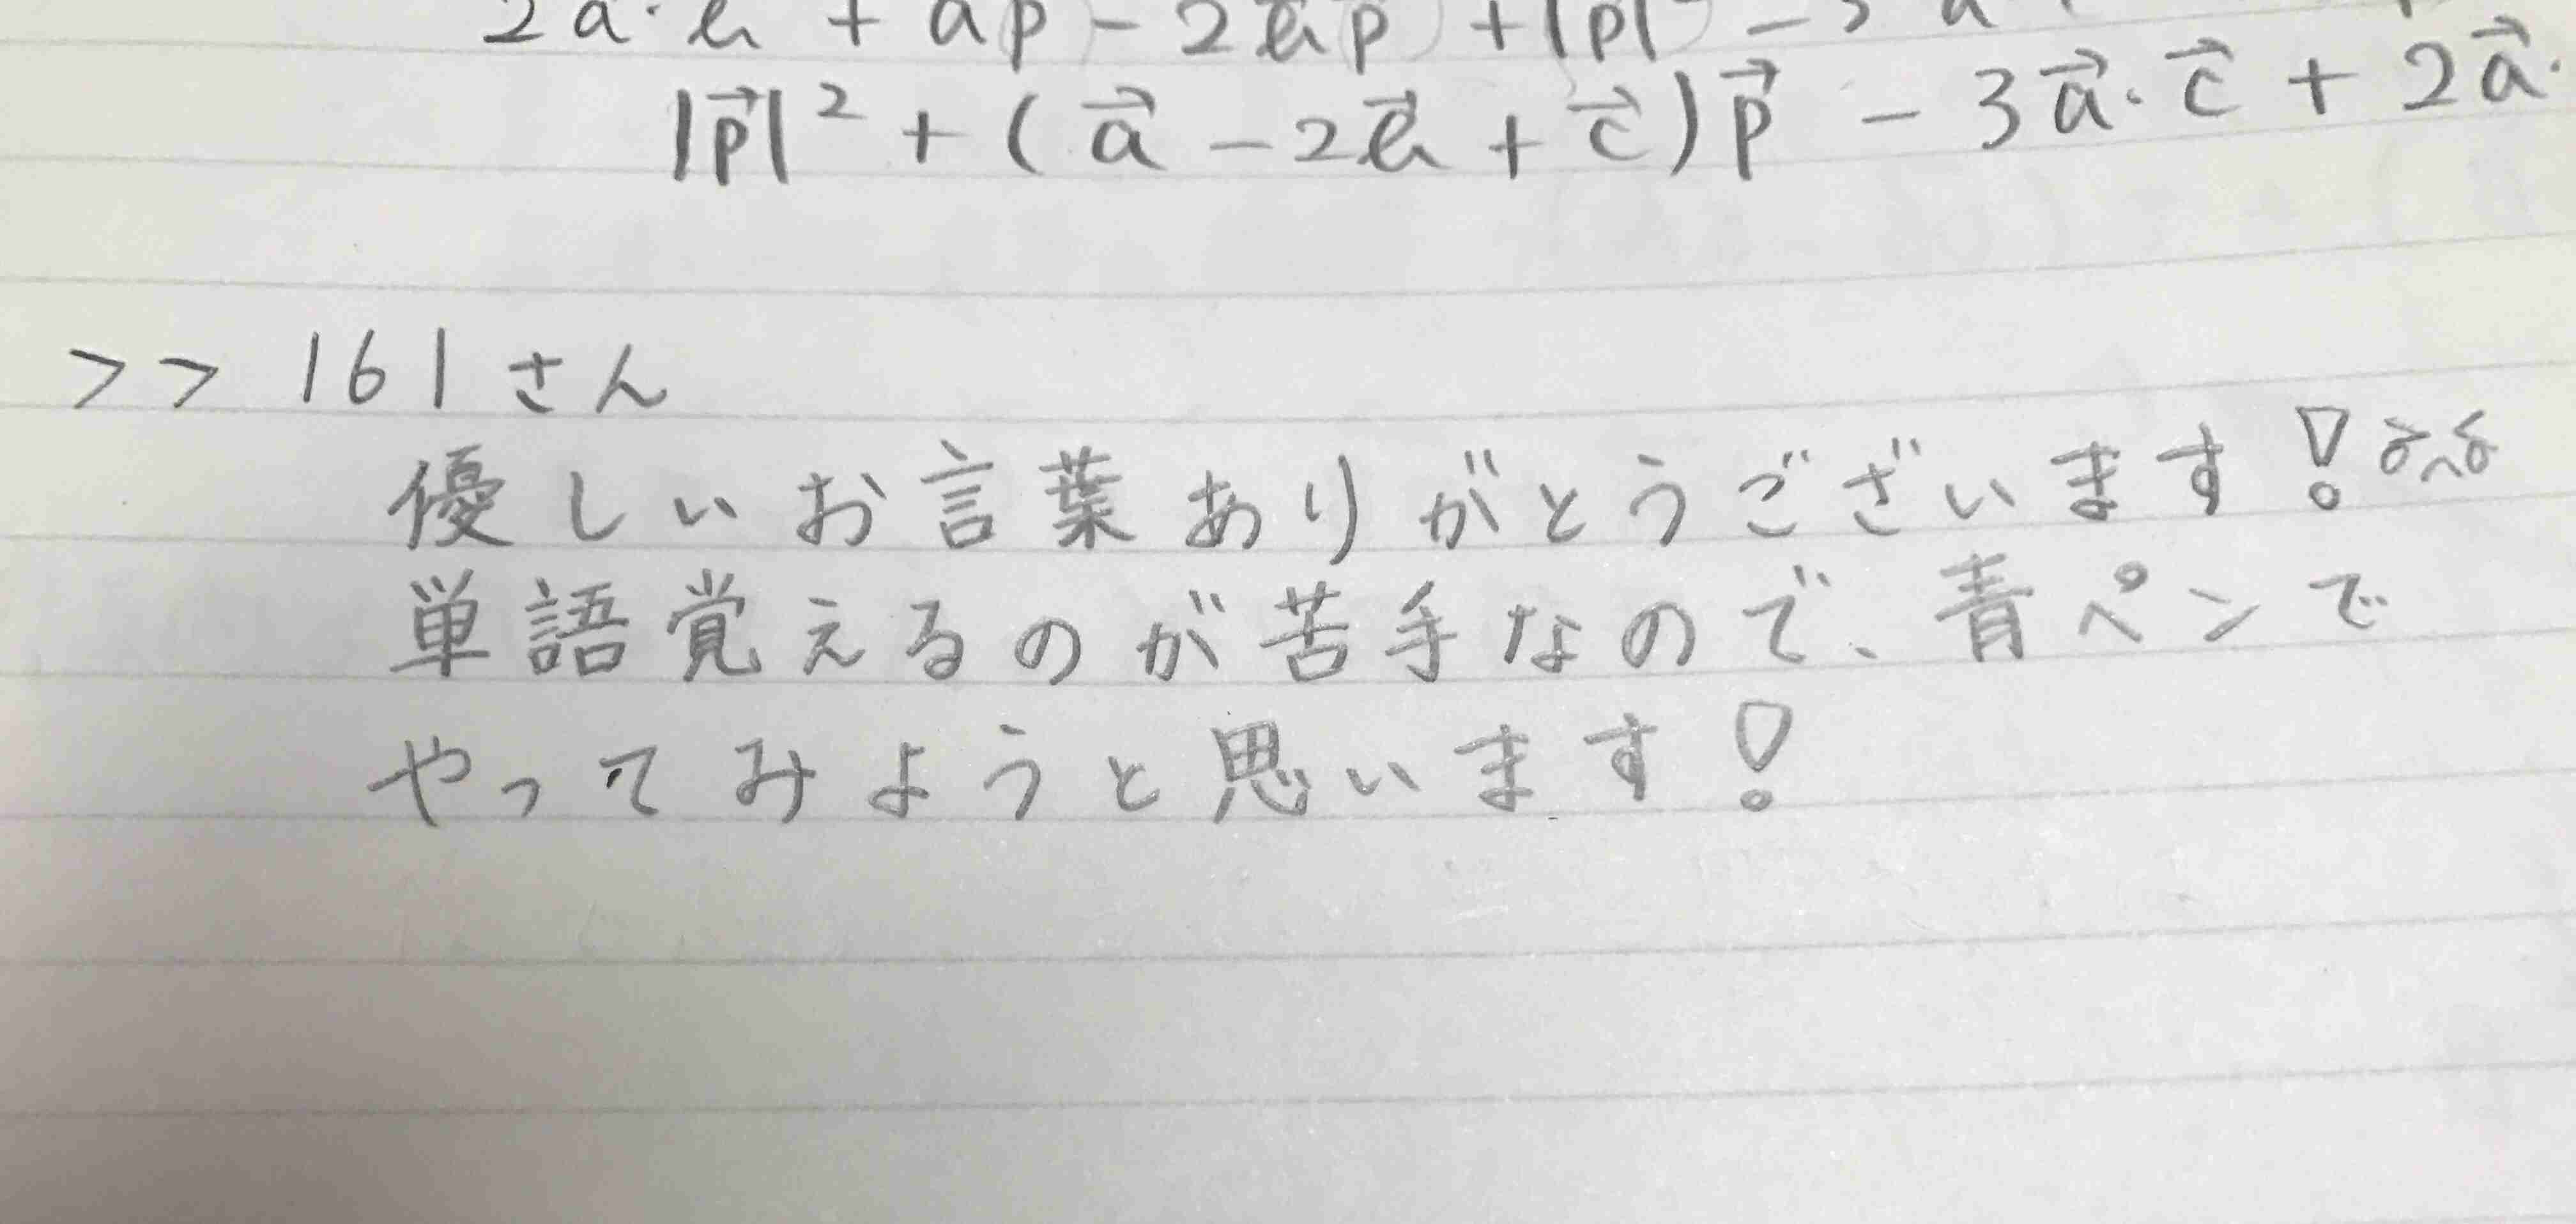 |p⃗|² + (a⃗ - 2b⃗ + c⃗)p⃗ - 3a⃗·c⃗ + 2a⃗·
>>161さん
優しいお言葉ありがとうございます!
単語覚えるのが苦手なので、青ペンで
やってみようと思います!